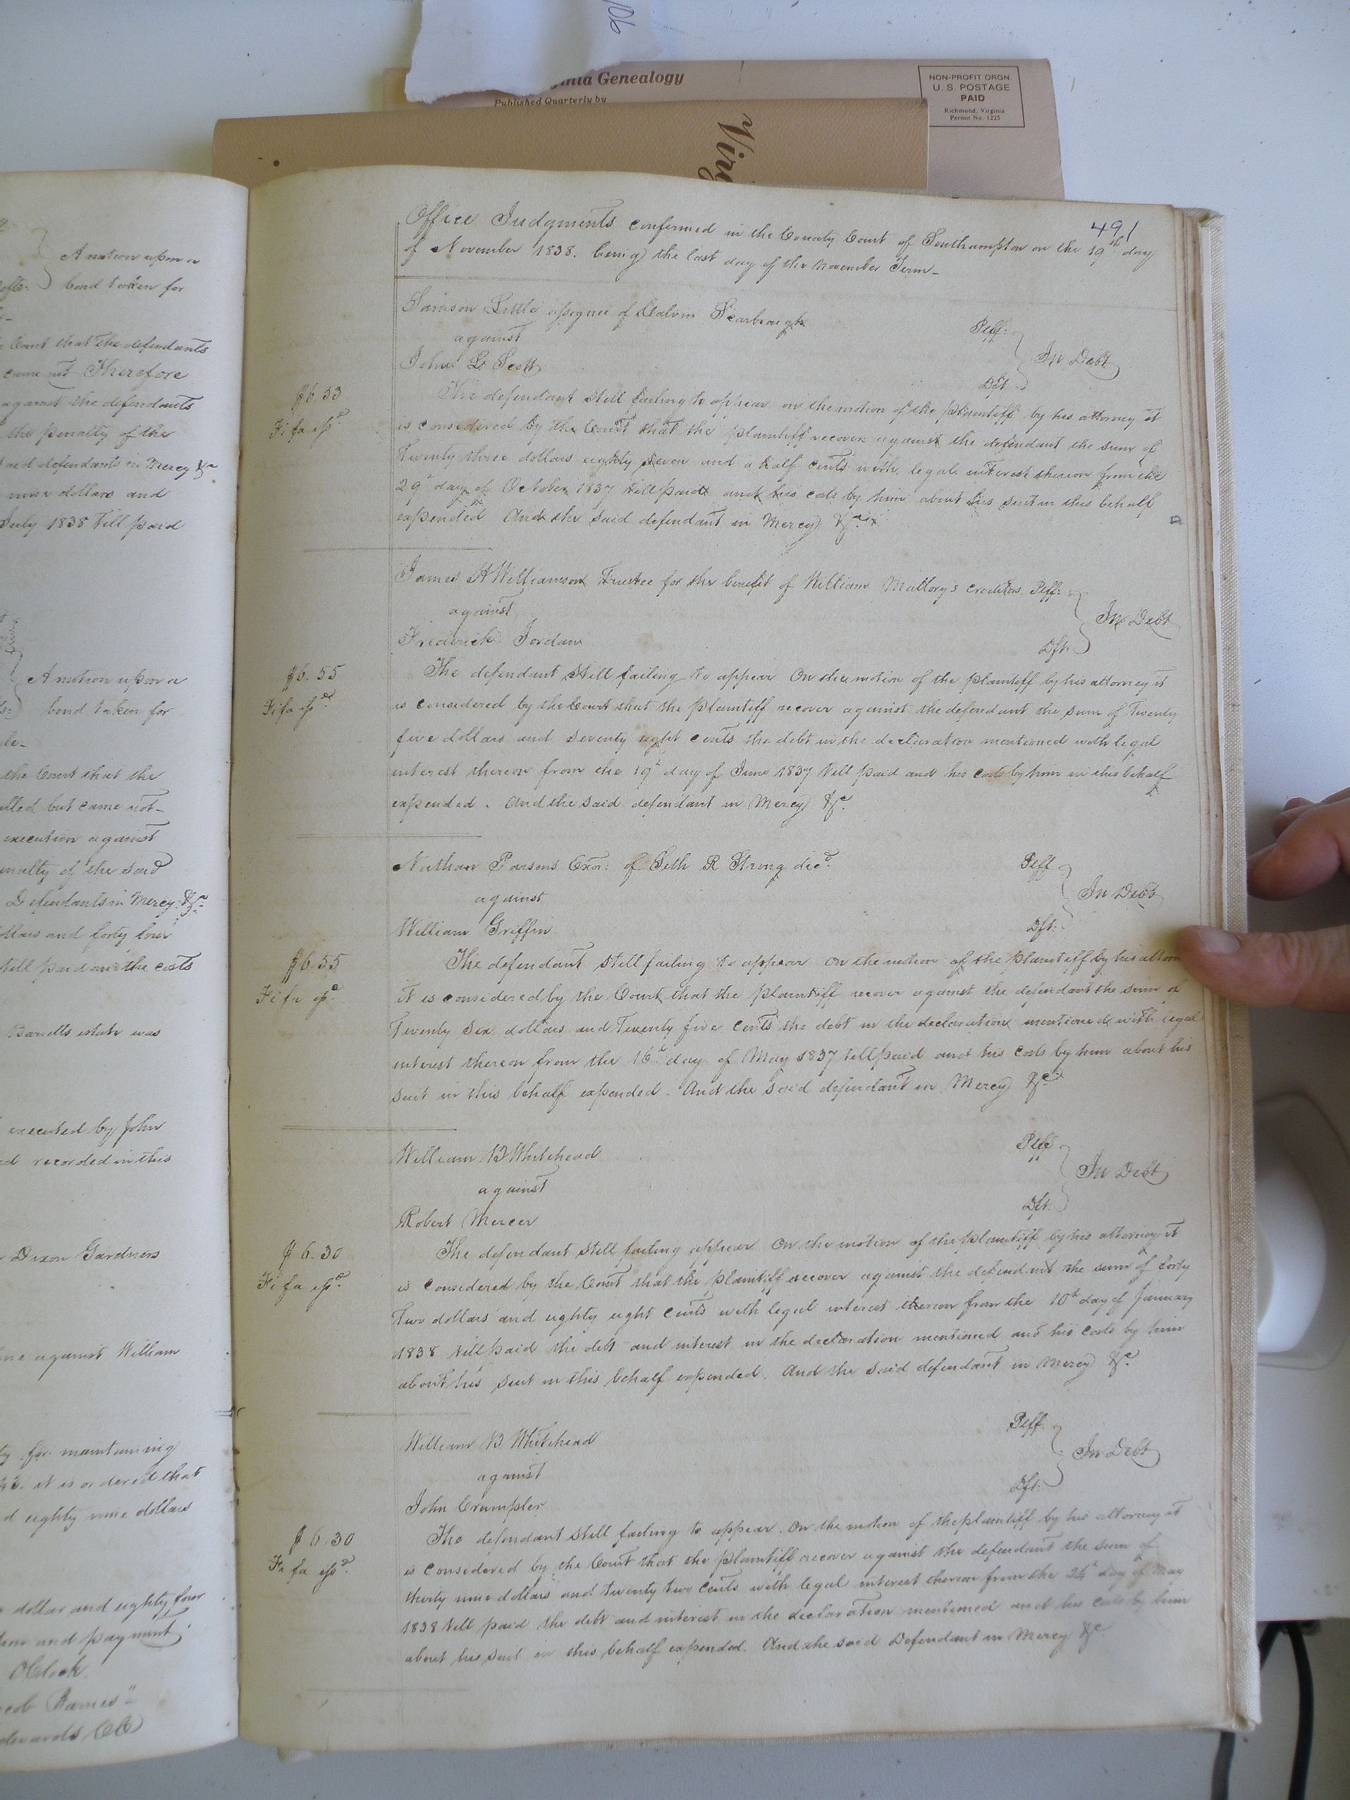 106
Virginia Genealogy
Published Quarterly by
NON-PROFIT ORGN
U. S. POSTAGE
PAID
Richmond, Virginia
Permit No. 1225
A motion upon a
bond taken for
Court that the defendants
came not Therefore
against the defendants
the penalty of the
said defendants in Mercy &c
nine dollars and
July 1838 till paid
A motion upon a
bond taken for
the Court that the
called but came not
execution against
penalty of the said
Defendants in Mercy &c
dollars and forty four
till paid and the costs
estate was
executed by John
recorded in this
Dixon Gardners
against William
for maintaining
it is ordered that
eighty nine dollars
dollar and eighty four
and payment
O'Clock
Barnes
491
Office Judgments confirmed in the County Court of Southampton on the 19th day
of November 1838. being the last day of the November Term
Samson Little assignee of Calvin Scarbrough Plff.
against In Debt
John L Scott Dft
$6.53
Fi fa issd
The defendant still failing to appear on the motion of the plaintiff by his attorney it
is considered by the Court that the plaintiff recover against the defendant the sum of
Twenty three dollars eighty seven and a half cents with legal interest thereon from the
29th day of October 1837 till paid and his costs by him about his suit in this behalf
expended And the said defendant in Mercy &c
James A Williamson Trustee for the benefit of William Mallory's creditors Plff.
against In Debt
Frederick Jordan Dft.
$6.55
Fi fa issd
The defendant still failing to appear On the motion of the plaintiff by his attorney it
is considered by the Court that the plaintiff recover against the defendant the sum of Twenty
five dollars and seventy eight cents the debt in the declaration mentioned with legal
interest thereon from the 19th day of June 1837 till paid and his costs by him in this behalf
expended. And the said defendant in Mercy &c.
Nathan Parsons Exor. of Seth R Strong decd. Plff
against In Debt
William Griffin Dft.
$6.55
Fi fa issd
The defendant still failing to appear On the motion of the plaintiff by his attorn
it is considered by the Court that the plaintiff recover against the defendant the sum of
Twenty six dollars and Twenty five cents the debt in the declaration mentioned with legal
interest thereon from the 16th day of May 1837 till paid and his costs by him about his
suit in this behalf expended. And the said defendant in Mercy &c
William B Whitehead Plff
against In Debt
Robert Mercer Dft.
$6.30
Fi fa issd
The defendant still failing appear On the motion of the plaintiff by his attorney it
is considered by the Court that the plaintiff recover against the defendant the sum of forty
two dollars and eighty eight cents with legal interest thereon from the 10th day of January
1838 till paid the debt and interest in the declaration mentioned and his costs by him
about his suit in this behalf expended. And the said defendant in Mercy &c.
William B Whitehead Plff.
against In Debt
John Crumpler Dft.
$6.30
Fi fa issd
The defendant still failing to appear. On the motion of the plaintiff by his attorney it
is considered by the Court that the plaintiff recover against the defendant the sum of
thirty nine dollars and twenty two cents with legal interest thereon from the day of May
1838 till paid the debt and interest in the declaration mentioned and his costs by him
about his suit in this behalf expended. And the said Defendant in Mercy &c